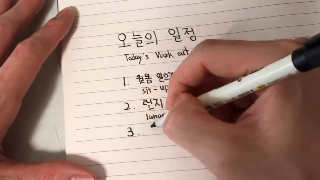 오늘의 일정
Today's Work out
1. 윗몸
sit-up
2. 런지
lunge
3.